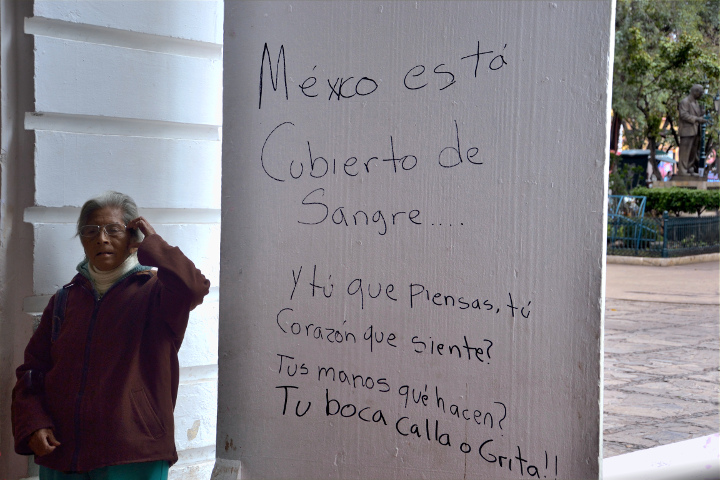 México está
Cubierto de
Sangre....
Y tú que piensas, tú
Corazón que siente?
Tus manos qué hacen?
Tu boca calla o Grita!!